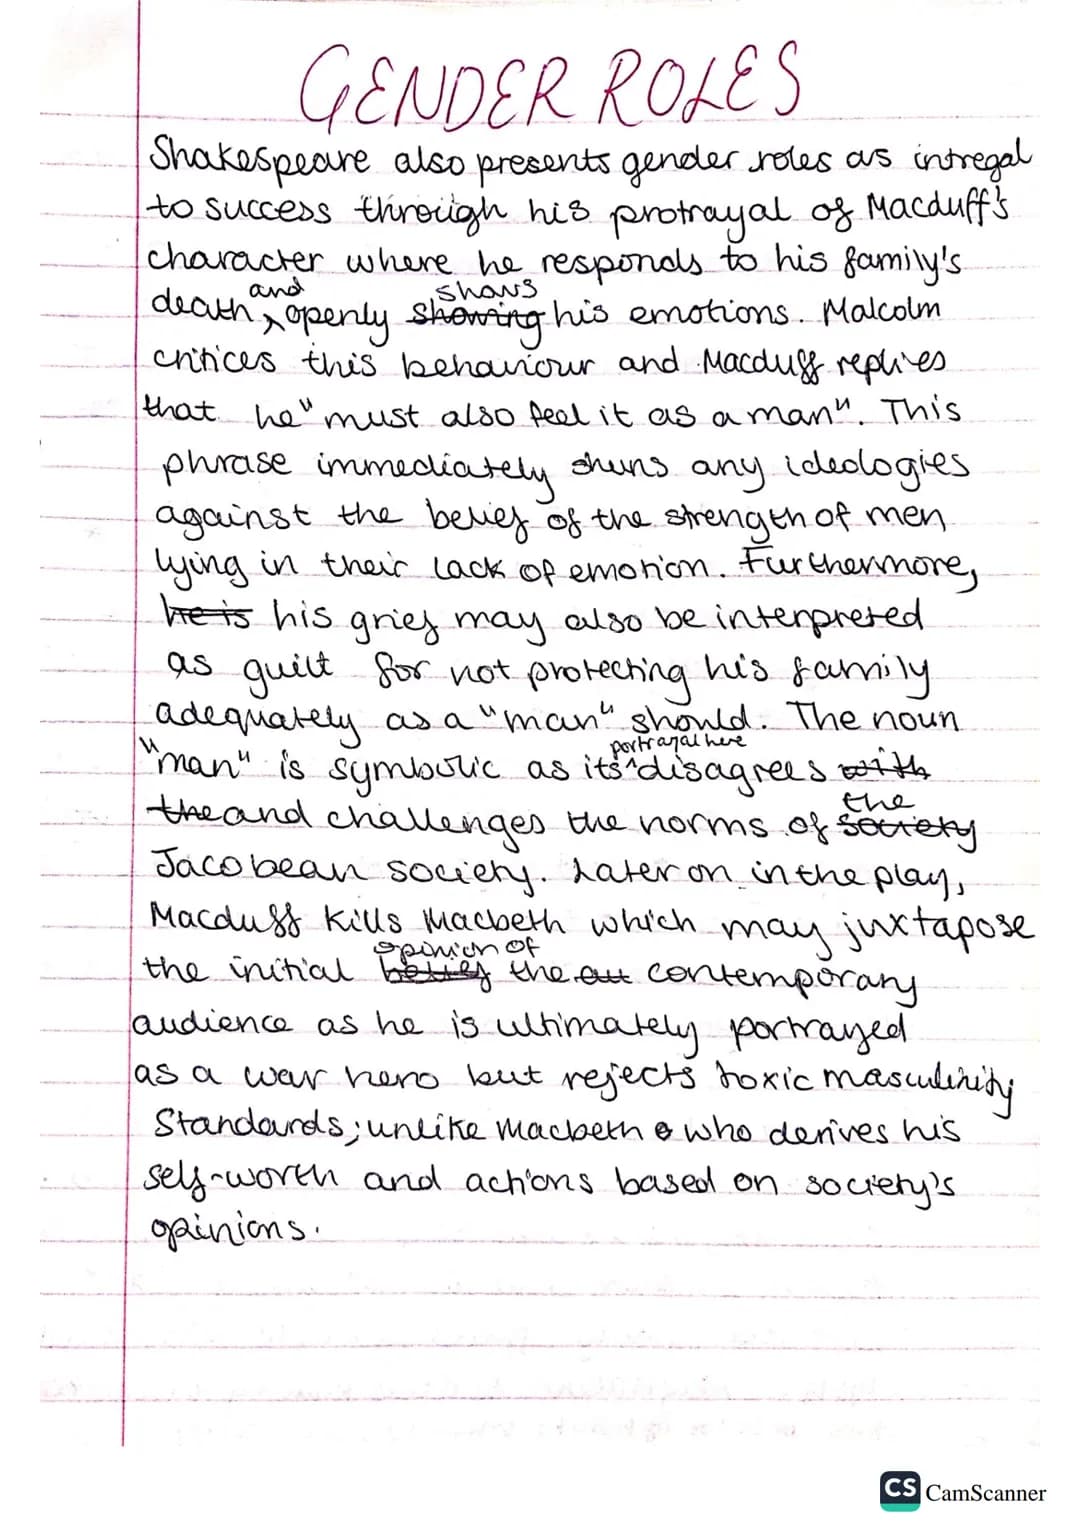 GENDER ROLES
Shakespeare also presents gender roles as intregal
to success through his protrayal of Macduff's
character where he responds to his family's
death, and openly showing shows his emotions. Malcolm
critices this behaviour and Macduff replies
that he "must also feel it as a man". This
phrase immediately shuns any ideologies
against the belief of the strength of men
lying in their lack of emotion. Furthermore,
he is his grief may also be interpreted
as guilt for not protecting his family
adequately as a "man" should. The noun
"man" is symbolic as its portrayal here disagrees with
the and challenges the norms of society the
Jacobean society. Later on in the play,
Macduff kills Macbeth which may juxtapose
the initial belief opinion of the au contemporary
audience as he is ultimately portrayed
as a war hero but rejects toxic masculinity
Standards; unlike Macbeth who derives his
self-worth and actions based on society's
opinions.
CS CamScanner